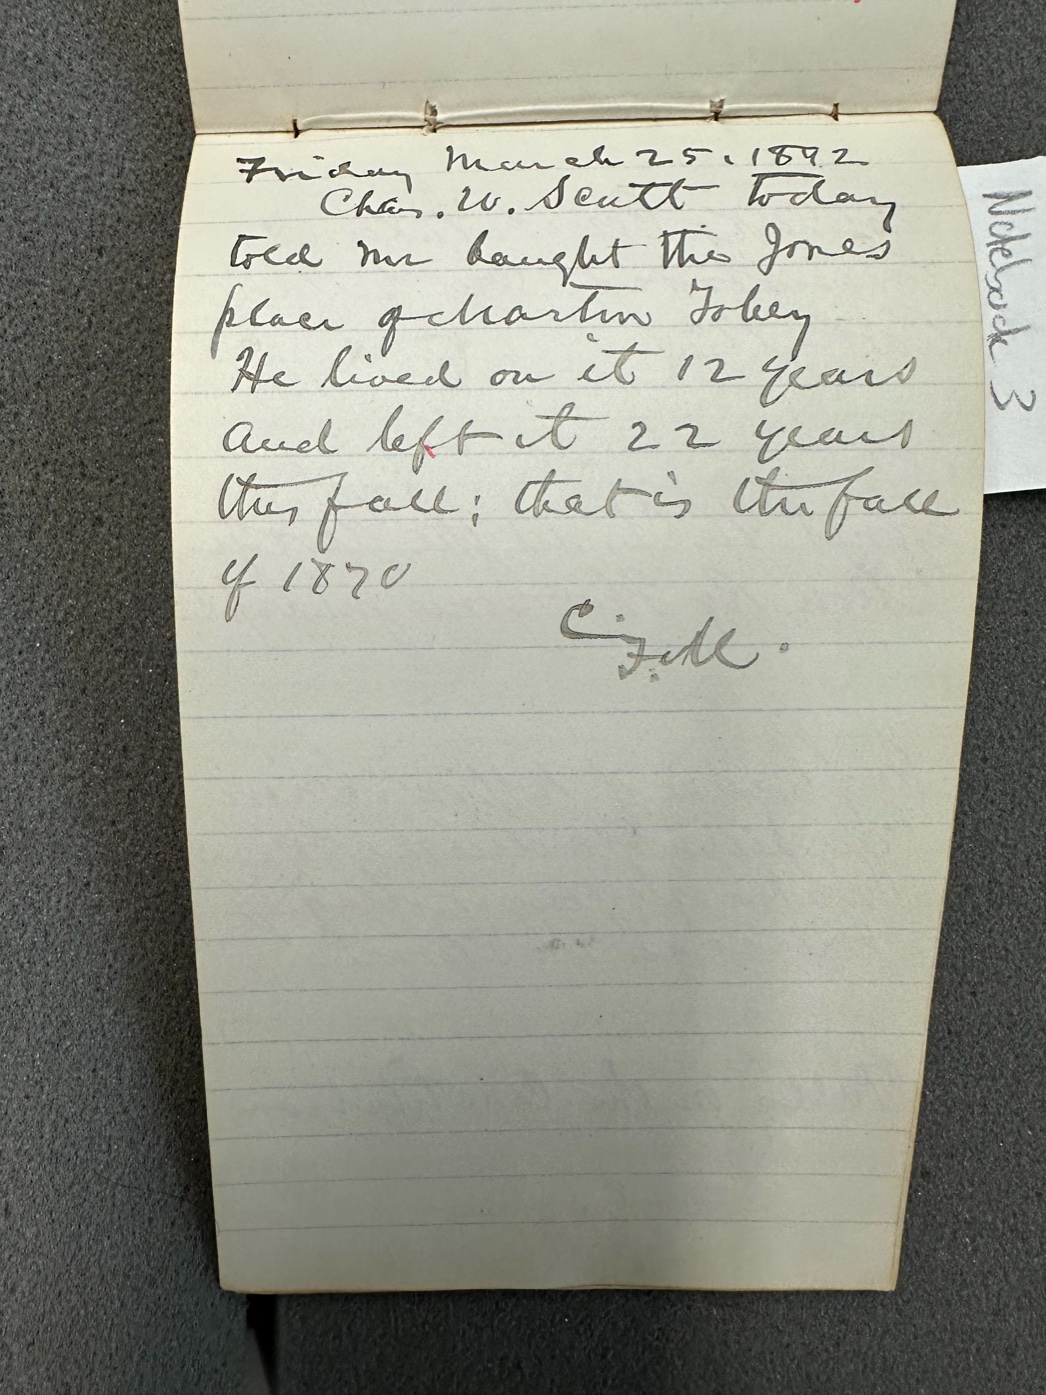 Friday March 25, 1892
Chas. W. Scott today
told me bought the Jones
place of Martin Tobey
He lived on it 12 years
and left it 22 years
this fall; that is the fall
of 1870
C.
Notebook 3